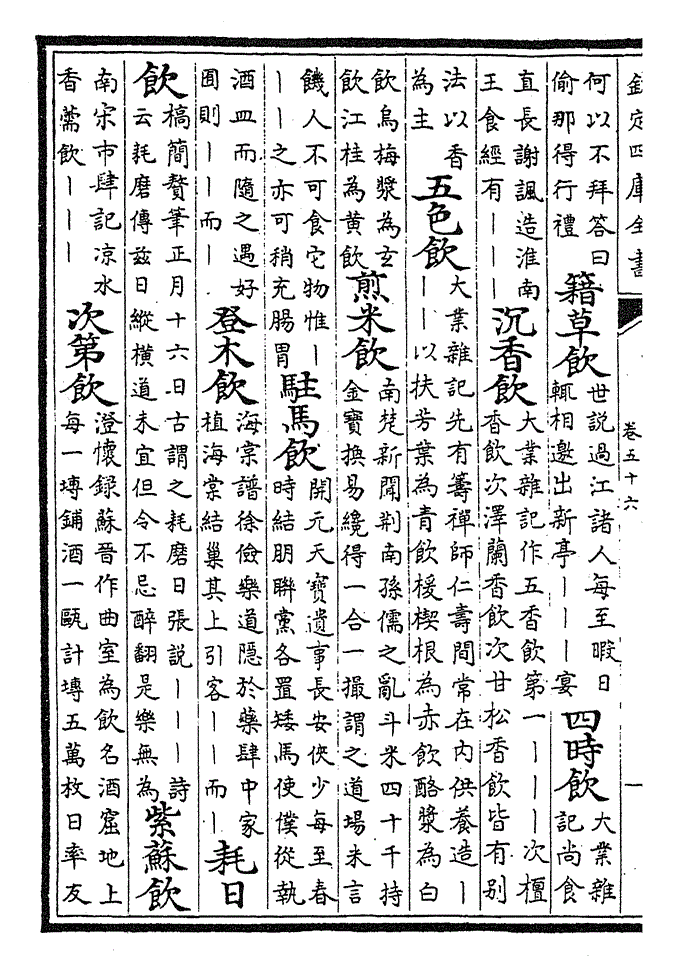 欽定四庫全書 卷五十六 一
何以不拜答曰偷那得行禮 籍草飲 世説過江諸人每至暇日輒相邀出新亭丨丨丨宴 四時飲 大業雜記尚食
直長謝諷造淮南王食經有丨丨丨 沉香飲 大業雜記作五香飲第一丨丨丨次檀香飲次澤蘭香飲次甘松香飲皆有别
法以香為主 五色飲 大業雜記先有籌禪師仁壽間常在内供養造丨丨丨以扶芳葉為青飲楥楔根為赤飲酪漿為白
飲烏梅漿為玄飲江桂為黄飲 煎米飲 南楚新聞荆南孫儒之亂斗米四十千持金寶換易纔得一合一撮謂之道場米言
饑人不可食它物惟丨丨丨之亦可稍充腸胃 駐馬飲 開元天寶遺事長安俠少每至春時結朋聯黨各置矮馬使僕從執
酒皿而隨之遇好囿則丨丨而丨 登木飲 海棠譜徐儉樂道隱於藥肆中家植海棠結巢其上引客丨丨而丨 耗日
飲 槁簡贅筆正月十六日古謂之耗磨日張説丨丨丨詩云耗磨傳兹日縱橫道未宜但令不忌醉翻是樂無為 紫蘇飲
南宋市肆記凉水香薷飲丨丨丨 次第飲 澄懷録蘇晉作曲室為飲名酒窟地上每一塼鋪酒一甌計塼五萬枚日率友